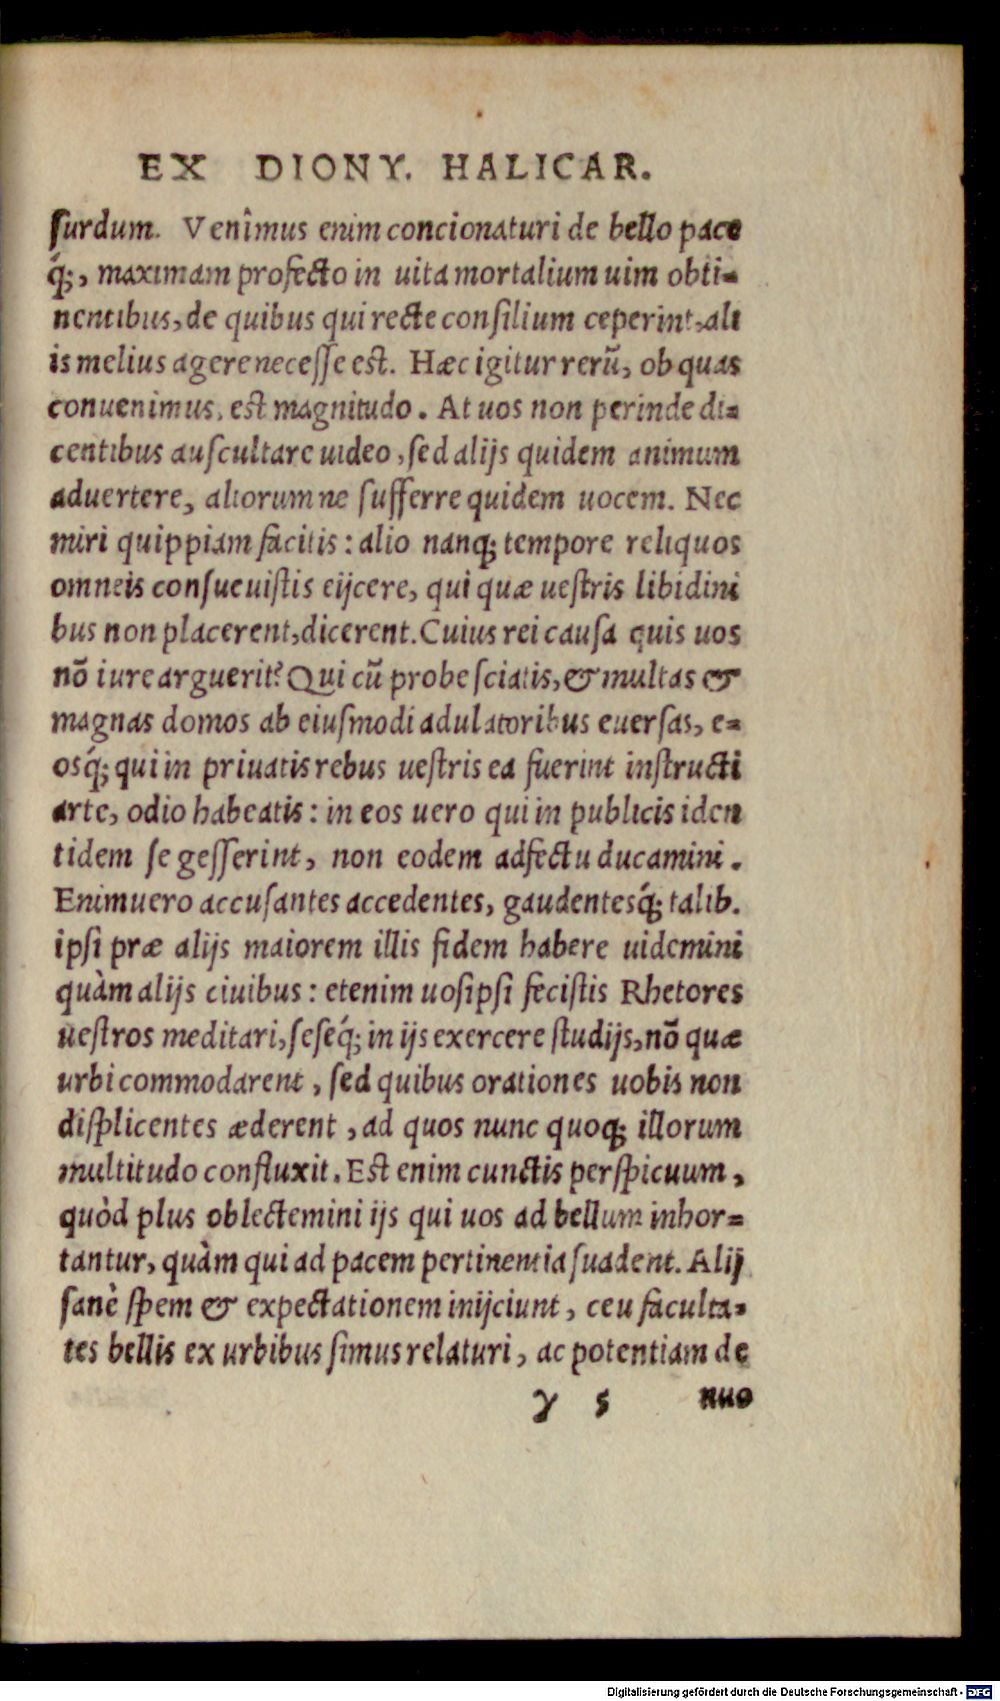 EX DIONY. HALICAR.
ſurdum. Venîmus enim concionaturi de bello pace
q́;, maximam profecto in uita mortalium uim obti=
nentibus, de quibus qui recte conſilium ceperint, ali
is melius agere neceſſe est. Hæc igitur rerũ, ob quas
conuenimus, est magnitudo. At uos non perinde di=
centibus auſcultare uideo, ſed alijs quidem animum
aduertere, aliorum ne ſufferre quidem uocem. Nec
miri quippiam facitis: alio nanq; tempore reliquos
omneis conſueuiſtis eijcere, qui quæ ueſtris libidini
bus non placerent, dicerent. Cuius rei cauſa quis uos
nõ iure arguerit? Qui cũ probe ſciatis, & multas &
magnas domos ab eiuſmodi adulatoribus euerſas, e=
osq́; qui in priuatis rebus ueſtris ea fuerint inſtructi
arte, odio habeatis: in eos uero qui in publicis iden
tidem ſe geſſerint, non eodem adfectu ducamini.
Enimuero accuſantes accedentes, gaudentesq́; talib.
ipſi præ alijs maiorem illis fidem habere uidemini
quàm alijs ciuibus: etenim uosipſi feciſtis Rhetores
ueſtros meditari, ſeſeq́; in ijs exercere ſtudijs, nõ quæ
urbi commodarent, ſed quibus orationes uobis non
diſplicentes æderent, ad quos nunc quoq; illorum
multitudo confluxit. Est enim cunctis perſpicuum,
quòd plus oblectemini ijs qui uos ad bellum inhor=
tantur, quàm qui ad pacem pertinentia ſuadent. Alij
ſanè ſpem & expectationem inijciunt, ceu faculta=
tes bellis ex urbibus ſimus relaturi, ac potentiam de
y 5 nuo
Digitalisierung gefördert durch die Deutsche Forschungsgemeinschaft - DFG